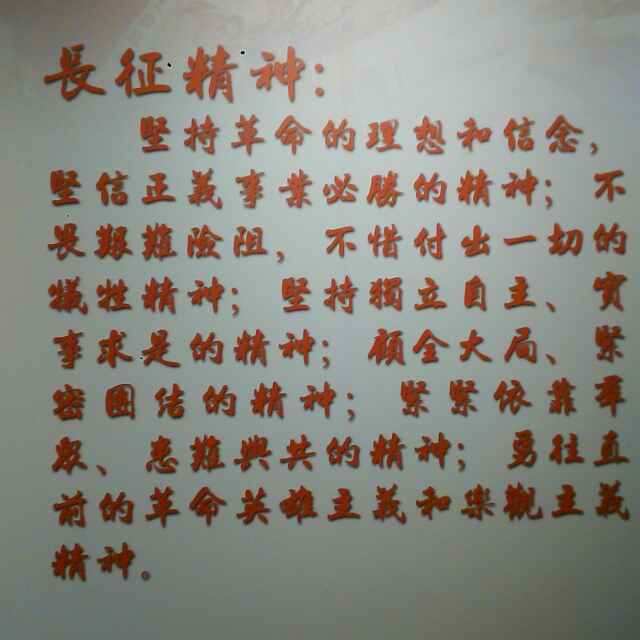 長征精神：
堅持革命的理想和信念，
堅信正義事業必勝的精神；不
畏艱難險阻，不惜付出一切的
犧牲精神；堅持獨立自主、實
事求是的精神；顧全大局、緊
密團结的精神；緊緊依靠羣
眾、患難與共的精神；勇往直
前的革命英雄主義和樂觀主義
精神。